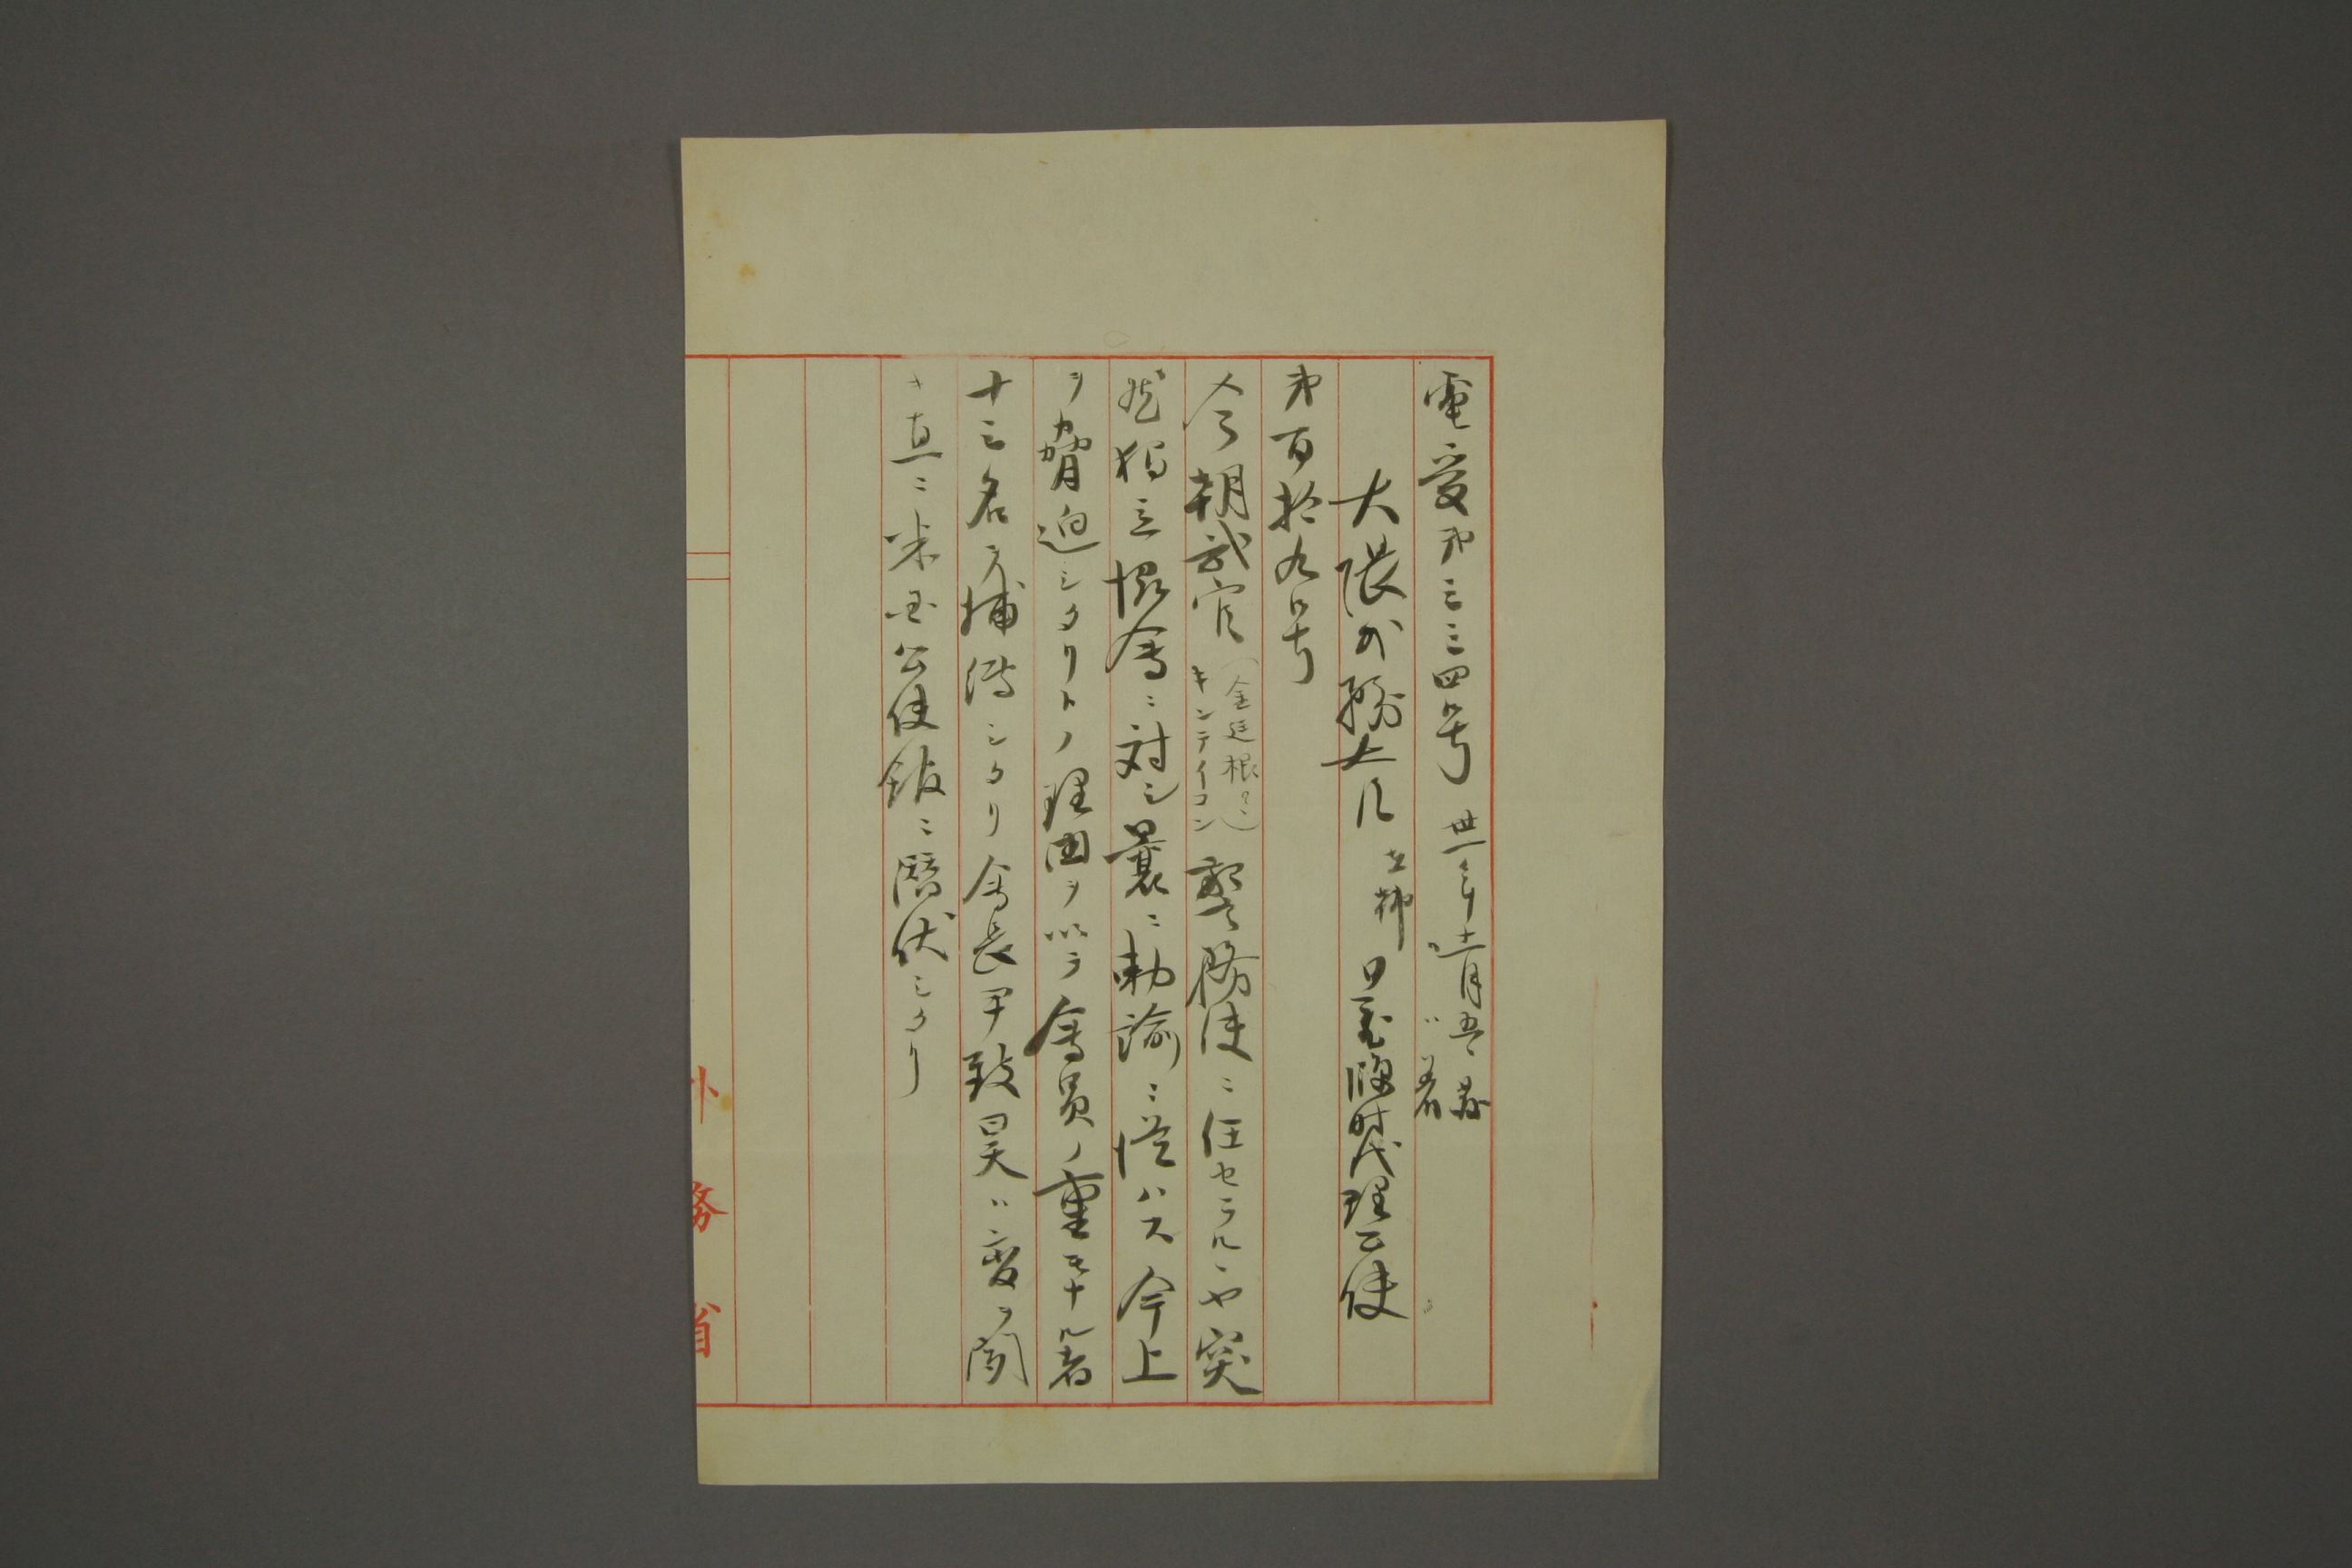 電受第三三四号 卅一年十一月五日発
〃 着
大隈外務大臣 在韓 日置臨時代理公使
第百拾九号
今朝武官(金廷根?)
キンテイコン 警務使ニ任セラルヽヤ突
然独立協会ニ対シ曩ニ勅諭ニ従ハス今上
ヲ脅迫シタリトノ理由ヲ以テ会員ノ重モナル者
十三名ヲ捕縛シタリ会長尹致昊ハ変ヲ聞
キ直ニ米国公使館ニ潜伏シタリ
外務省